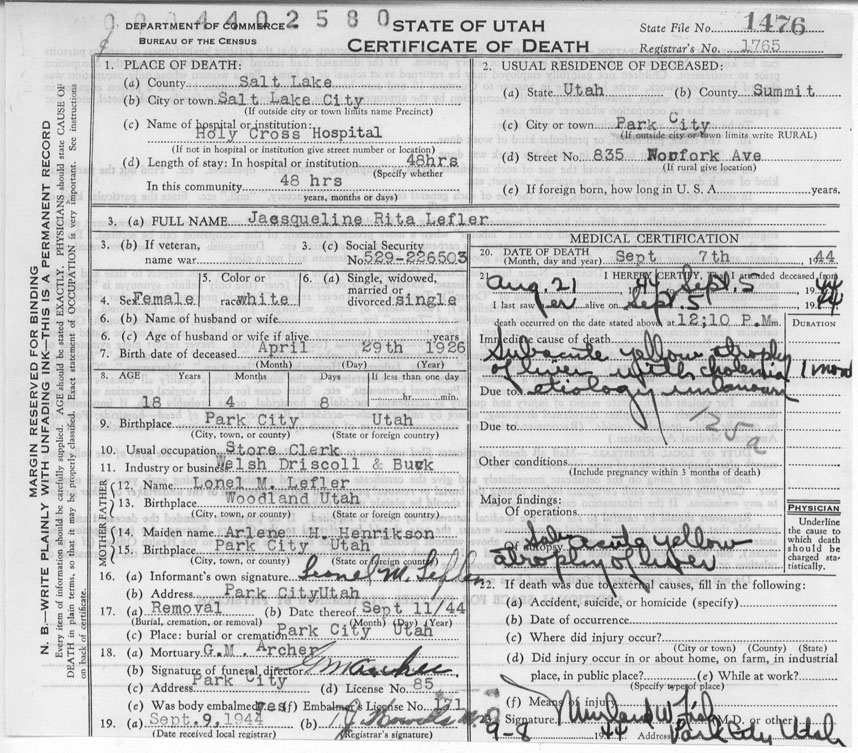 0 0 4 4 0 2 5 8 0
DEPARTMENT OF COMMERCE
BUREAU OF THE CENSUS
STATE OF UTAH
CERTIFICATE OF DEATH
State File No. 1476
Registrar's No. 1765
MARGIN RESERVED FOR BINDING
N. B.—WRITE PLAINLY WITH UNFADING INK—THIS IS A PERMANENT RECORD
Every item of information should be carefully supplied. AGE should be stated EXACTLY. PHYSICIANS should state CAUSE OF
DEATH in plain terms, so that it may be properly classified. Exact statement of OCCUPATION is very important. See instructions
on back of certificate.
1. PLACE OF DEATH:
(a) County Salt Lake
(b) City or town Salt Lake City
(If outside city or town limits name Precinct)
(c) Name of hospital or institution:
Holy Cross Hospital
(If not in hospital or institution give street number or location)
(d) Length of stay: In hospital or institution 48hrs
(Specify whether
In this community 48 hrs
years, months or days)
2. USUAL RESIDENCE OF DECEASED:
(a) State Utah (b) County Summit
(c) City or town Park City
(If outside city or town limits write RURAL)
(d) Street No. 835 Norfork Ave
(If rural give location)
(e) If foreign born, how long in U. S. A. years.
3. (a) FULL NAME Jacsqueline Rita Lefler
3. (b) If veteran,
name war
3. (c) Social Security
No. 529-226503
4. Sex Female
5. Color or
race white
6. (a) Single, widowed,
married or
divorced single
6. (b) Name of husband or wife
6. (c) Age of husband or wife if alive years
7. Birth date of deceased April 29th 1926
(Month) (Day) (Year)
8. AGE Years Months Days If less than one day
18 4 8 hr. min.
9. Birthplace Park City Utah
(City, town, or county) (State or foreign country)
10. Usual occupation Store Clerk
11. Industry or business Welsh Driscoll & Buck
FATHER
12. Name Lonel M. Lefler
13. Birthplace Woodland Utah
(City, town, or county) (State or foreign country)
MOTHER
14. Maiden name Arlene H. Henrikson
15. Birthplace Park City Utah
(City, town, or county) (State or foreign country)
16. (a) Informant's own signature Lionel M. Lefler
(b) Address Park City Utah
17. (a) Removal (b) Date thereof Sept 11/44
(Burial, cremation, or removal) (Month) (Day) (Year)
(c) Place: burial or cremation Park City Utah
18. (a) Mortuary G.M. Archer
(b) Signature of funeral director GM Archer
(c) Address Park City (d) License No. 85
(e) Was body embalmed yes (f) Embalmer's License No. 121
19. (a) Sept. 9, 1944 (b)
(Date received local registrar) (Registrar's signature)
MEDICAL CERTIFICATION
20. DATE OF DEATH
(Month, day and year) Sept 7th, 1944
21. I HEREBY CERTIFY, That I attended deceased from
Aug. 21 44 Sept. 5 1944
I last saw er alive on Sept. 5 1944
death occurred on the date stated above at 12;10 P.M.
DURATION
Immediate cause of death
Subacute yellow atrophy
of liver with cholemia 1 mon
Due to etiology unknown
Due to 125a
Other conditions
(Include pregnancy within 3 months of death)
Major findings:
Of operations
Of autopsy Subacute yellow
atrophy of liver
PHYSICIAN
Underline
the cause to
which death
should be
charged sta-
tistically.
22. If death was due to external causes, fill in the following:
(a) Accident, suicide, or homicide (specify)
(b) Date of occurrence
(c) Where did injury occur?
(City or town) (County) (State)
(d) Did injury occur in or about home, on farm, in industrial
place, in public place? (e) While at work?
(Specify type of place)
(f) Means of injury
23. Signature M.D. or other
9-8 1944 Address Park City Utah